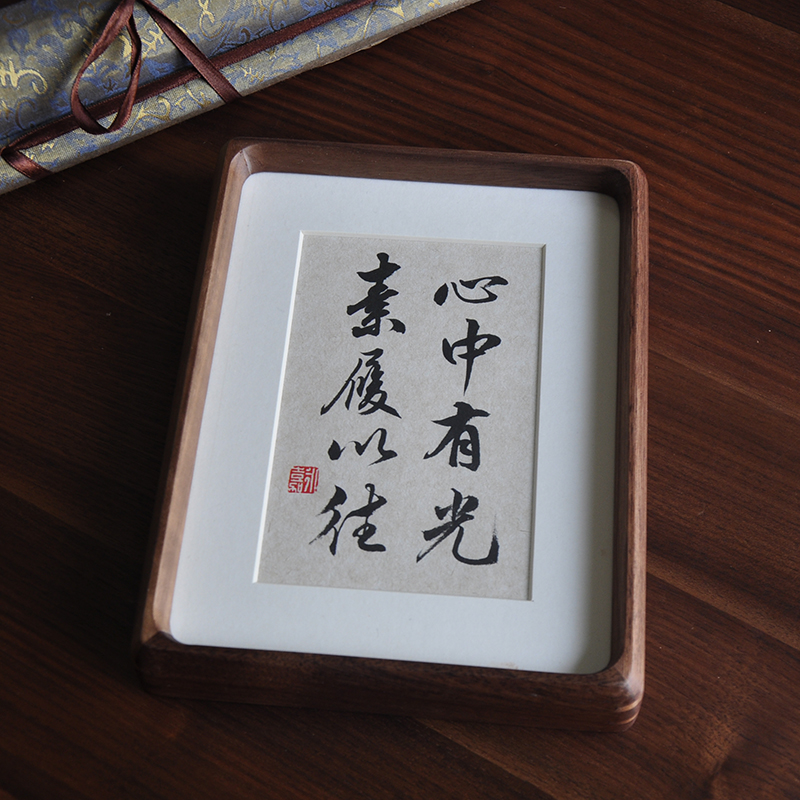 心中有光
素履以往